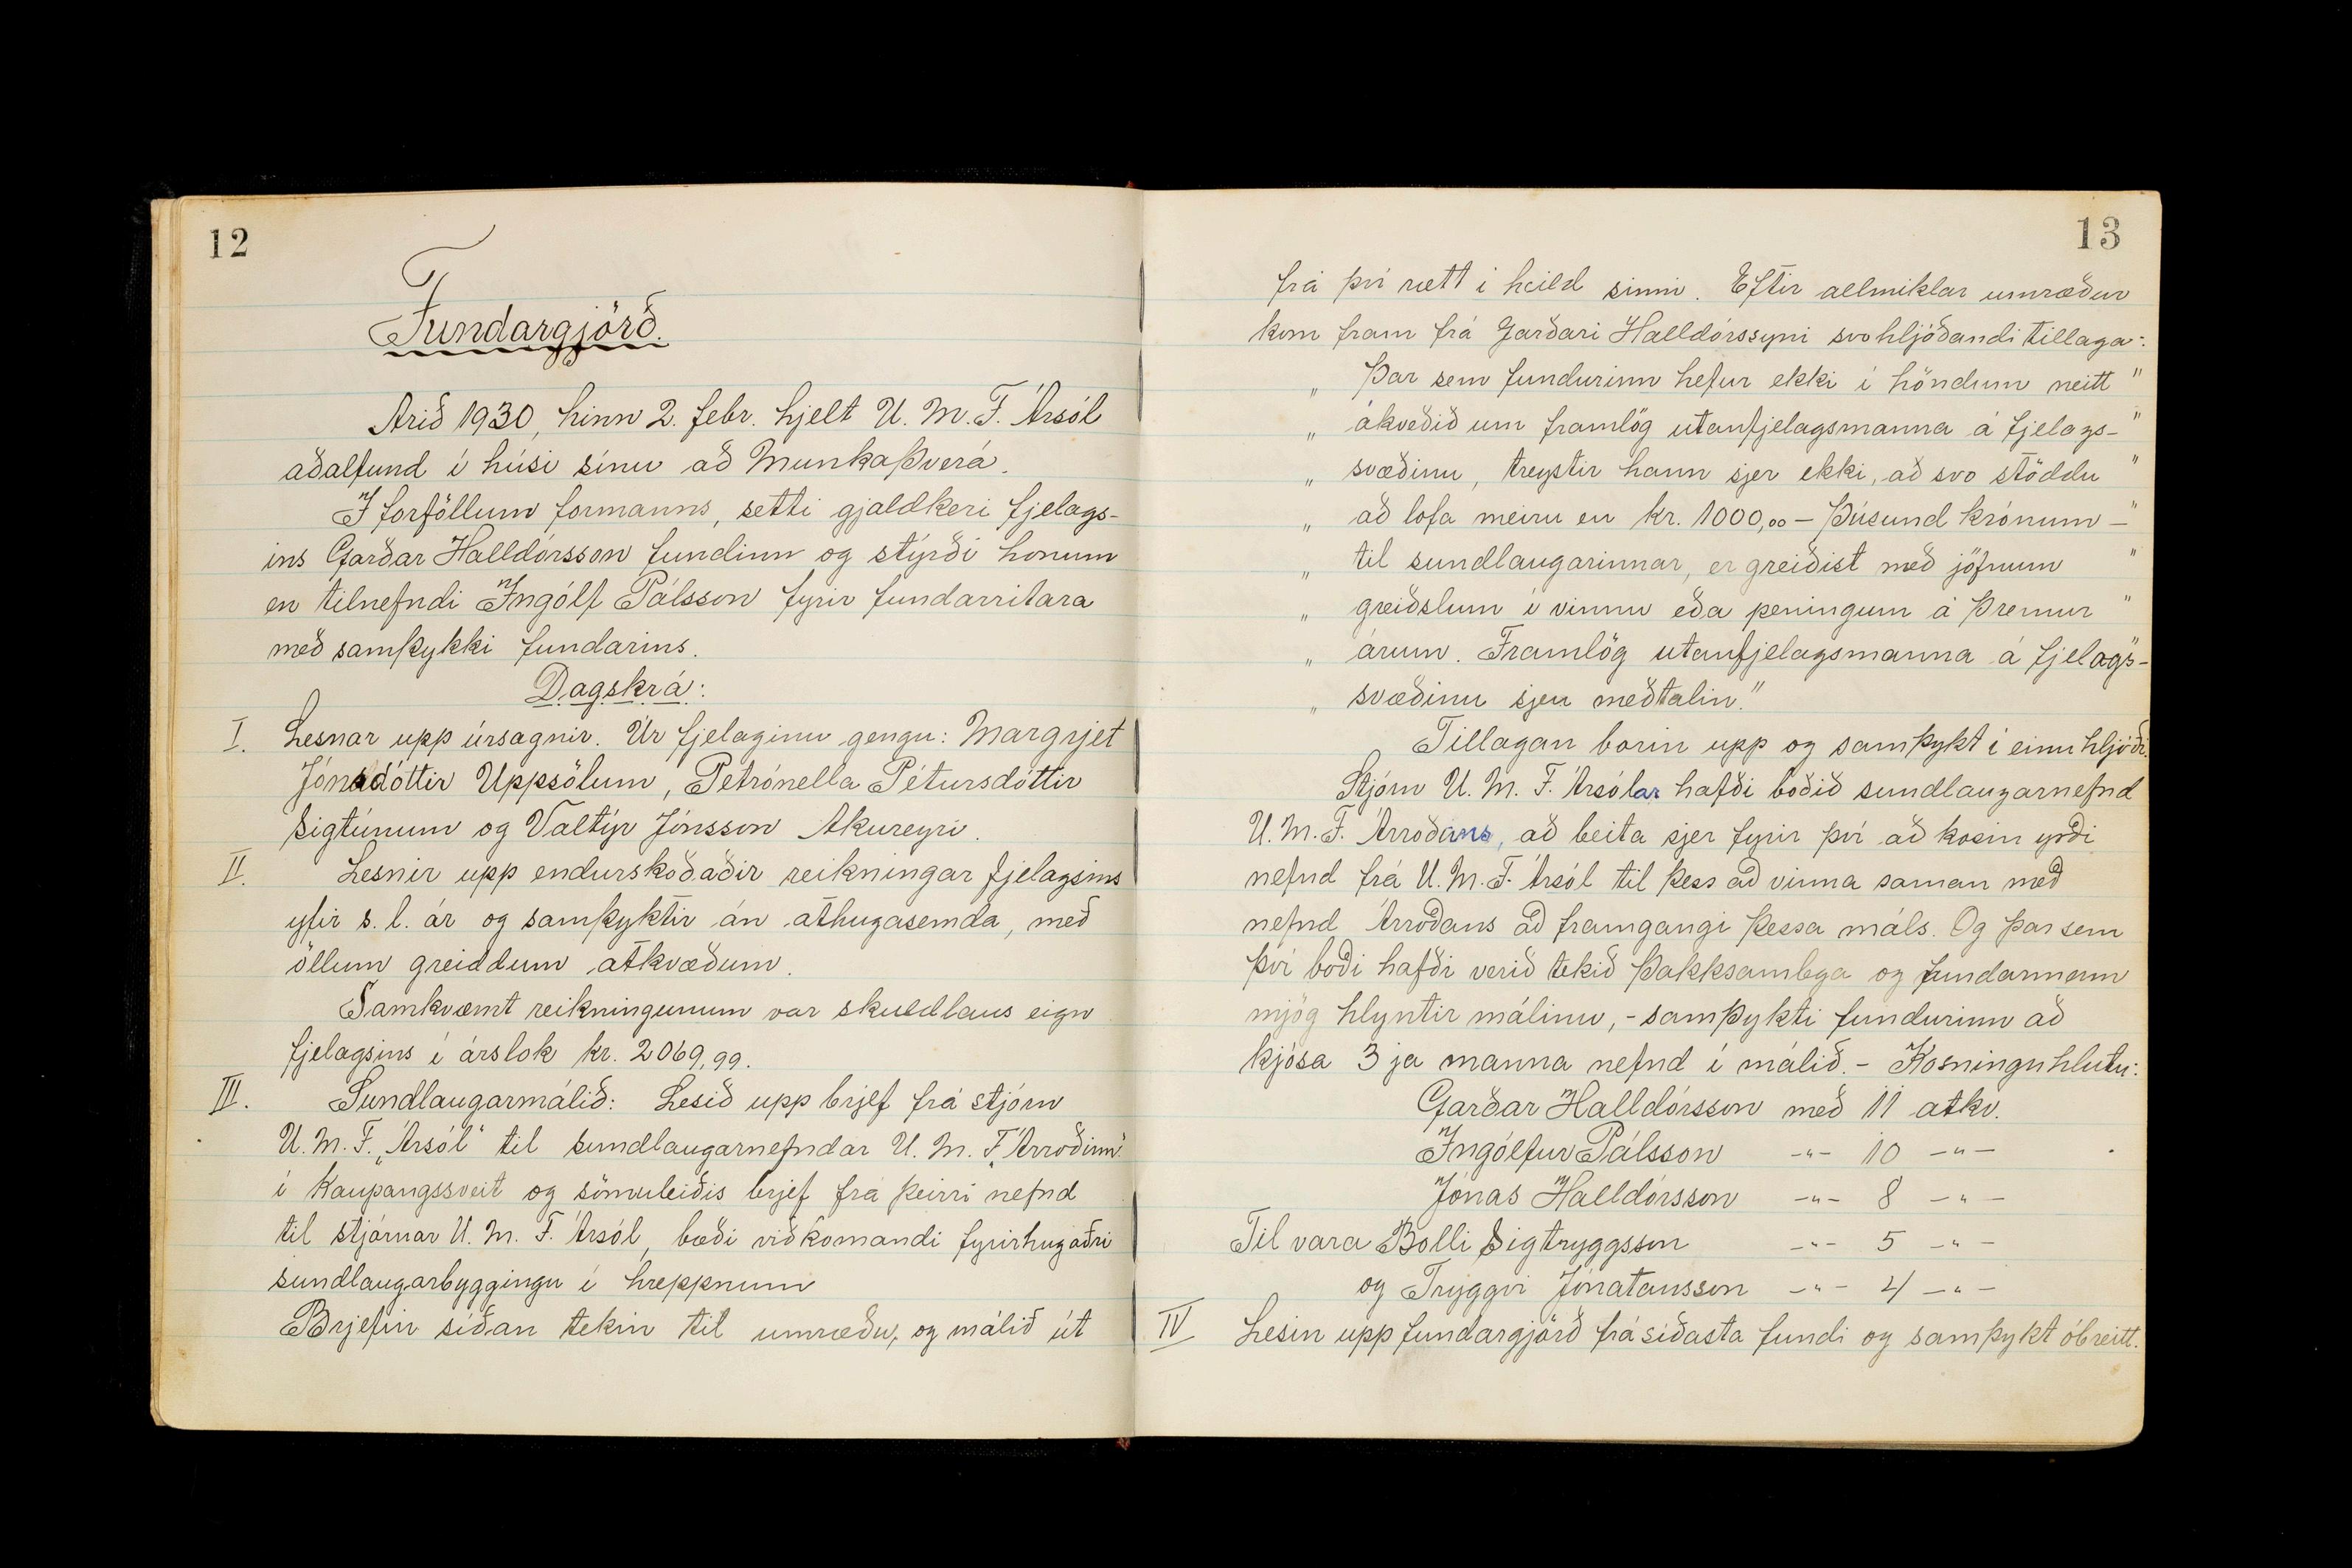 12
Fundargjörð.
Árið 1930, hinn 2. febr. hjelt U. M. F. Ársól
aðalfund í húsi sínu að Munkaþverá.
Í forföllum formanns, setti gjaldkeri fjelags-
ins Garðar Halldórsson fundinn og stýrði honum
en tilnefndi Ingólf Pálsson fyrir fundarritara
með samþykki fundarins.
Dagskrá:
I. Lesnar upp úrsagnir. Úr fjelaginu gengu: Margrjet
Jónsdóttir Uppsölum, Petrónella Pétursdóttir
Sigtúnum og Valtýr Jónsson Akureyri.
II. Lesnir upp endurskoðaðir reikningar fjelagsins
yfir s. l. ár og samþyktir án athugasemda, með
öllum greiddum atkvæðum.
Samkvæmt reikningunum var skuldlaus eign
fjelagsins í árslok kr. 2069,99.
III. Sundlaugarmálið: Lesið upp brjef frá stjórn
U. M. F. „Ársól" til sundlaugarnefndar U. M. F. „Árroðinn"
í Kaupangssveit og sömuleiðis brjef frá þeirri nefnd
til stjórnar U. M. F. Ársól, bæði viðkomandi fyrirhugaðri
sundlaugarbyggingu í hreppnum
Brjefin síðan tekin til umræðu, og málið út
13
frá því rætt í heild sinni. Eftir allmiklar umræður
kom fram frá Garðari Halldórssyni svohljóðandi tillaga:
„ Þar sem fundurinn hefur ekki í höndum neitt "
„ ákveðið um framlög utanfjelagsmanna á fjelags- "
„ svæðinu, treystir hann sjer ekki, að svo stöddu "
„ að lofa meiru en kr. 1000,00 – Þúsund krónum – "
„ til sundlaugarinnar, er greiðist með jöfnum "
„ greiðslum í vinnu eða peningum á þremur "
„ árum. Framlög utanfjelagsmanna á fjelags- "
„ svæðinu sjeu meðtalin."
Tillagan borin upp og samþykt í einu hljóði.
Stjórn U. M. F. Ársólar hafði boðið sundlaugarnefnd
U. M. F. Árroðans, að beita sjer fyrir því að kosin yrði
nefnd frá U. M. F. Ársól til þess að vinna saman með
nefnd Árroðans að framgangi þessa máls. Og þar sem
því boði hafði verið tekið þakksamlega og fundarmenn
mjög hlyntir málinu, - samþykti fundurinn að
kjósa 3 ja manna nefnd í málið. - Kosningu hlutu:
Garðar Halldórsson með 11 atkv.
Ingólfur Pálsson -"- 10 -"-
Jónas Halldórsson -"- 8 -"-
Til vara Bolli Sigtryggsson -"- 5 -"-
og Tryggvi Jónatansson -"- 4 -"-
IV Lesin upp fundargjörð frá síðasta fundi og samþykt óbreitt.